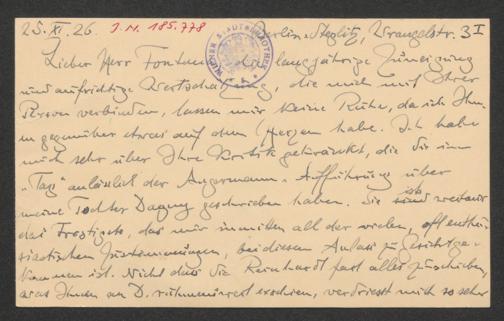 25. XI. 26. J. N. 185.778 Berlin-Steglitz, Wrangelstr. 3 I
Lieber Herr Fontana, die langjährige Zuneigung
und aufrichtige Wertschätzung, die mich mit Ihrer
Person verbinden, lassen mir keine Ruhe, da ich Ihn-
en gegenüber etwas auf dem Herzen habe. Ich habe
mich sehr über Ihre Kritik gekränkt, die Sie im
„Tag" anläßlich der Angermann-Aufführung über
meine Tochter Dagny geschrieben haben. Sie ist weitaus
das Frostigste, das mir inmitten all der vielen, oft enthu-
siastischen Zustimmungen, bei diesem Anlass zu Gesicht ge-
kommen ist. Nicht dass Sie Reinhardt fast alles zuschieben,
was Ihnen an D. rühmenswert erschien, verdriesst mich so sehr